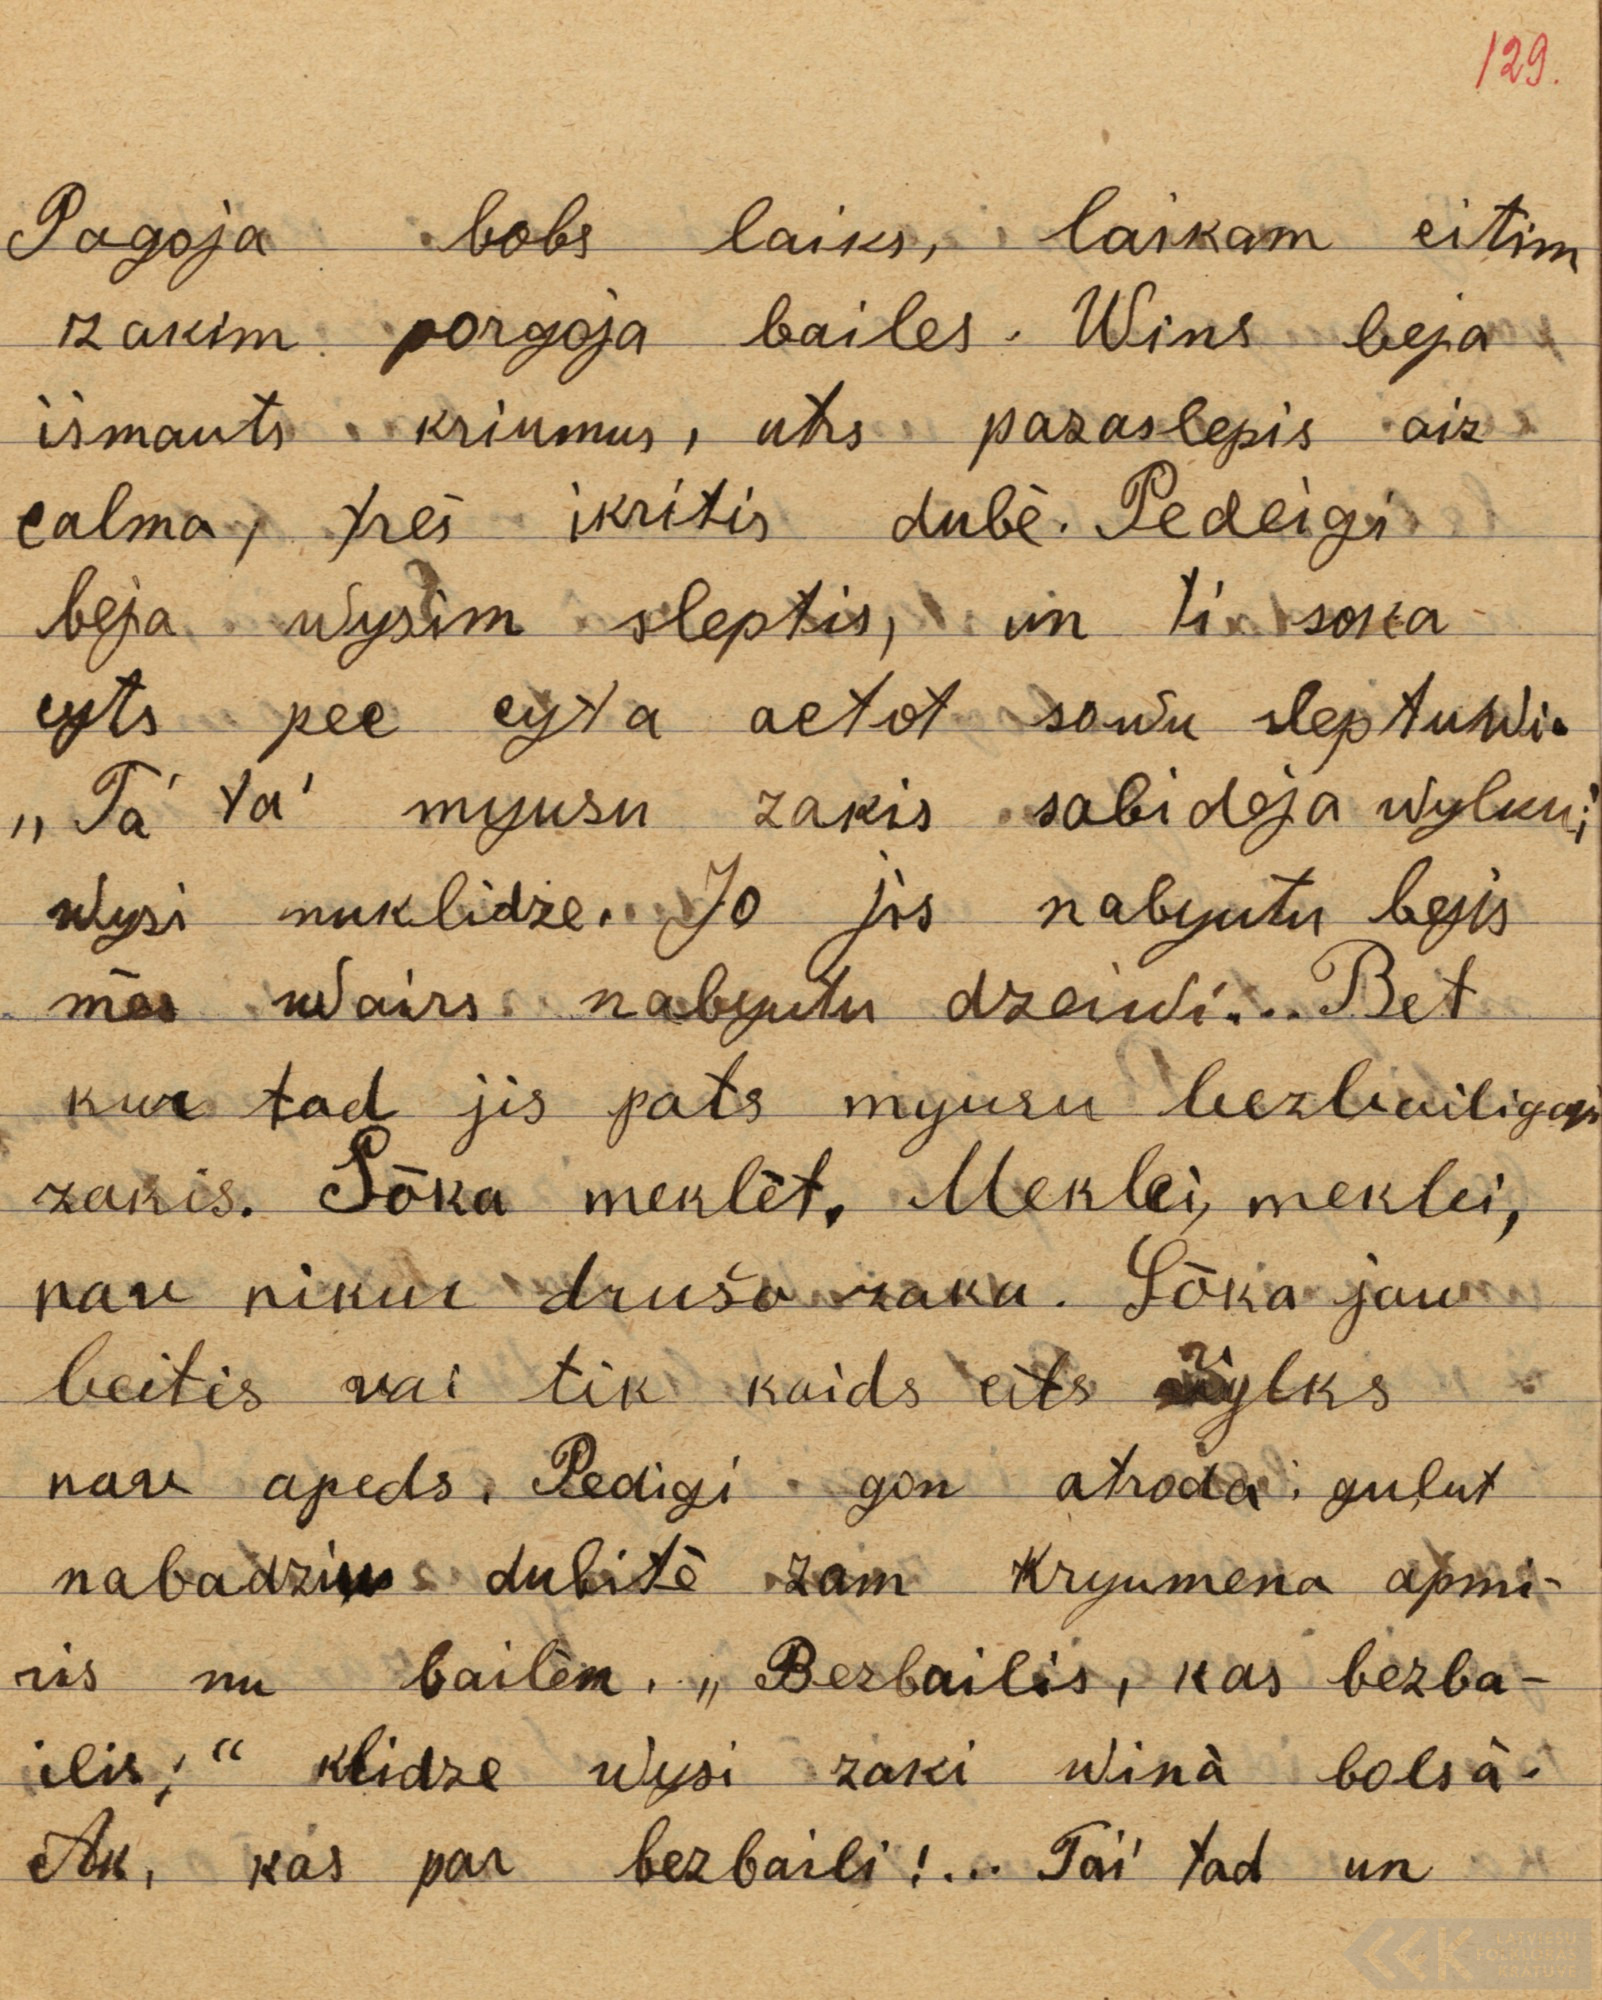 129.
Pagoja bobs laiks, laikam eitim
zakim porgoja bailes. Wins beja
iismauts kriumus, utrs pazaslepis aiz
calma, tres ikritis dubē. Pedeigi
beja wysim sleptis, un ti soka
cyts pee cyta actot sowu sleptuwi.
„Ta' ta' myusu zakis sabideja wylku;
wysi nuklidze. Jo jis nabyutu bejis
mēs wairs nabyutu dzeiwi... Bet
kur tad jis pats myusu bezbailigais
zakis. Sōka meklēt. Meklei, meklei,
nav nikur drušo zaka. Sōka jau
beitis vai tik kaids eits wylks
nav apeds. Pedigi gon atroda gulut
nabadziņu dubitē zam kryumena apmi-
ris nu bailēm. „Bezbailis, kas bezba-
ilis;“ klidze wysi zaki winà bolsà.
Ak, kas par bezbaili!... Tai' tad un
LATVIEŠU
FOLKLORAS
KRĀTUVE